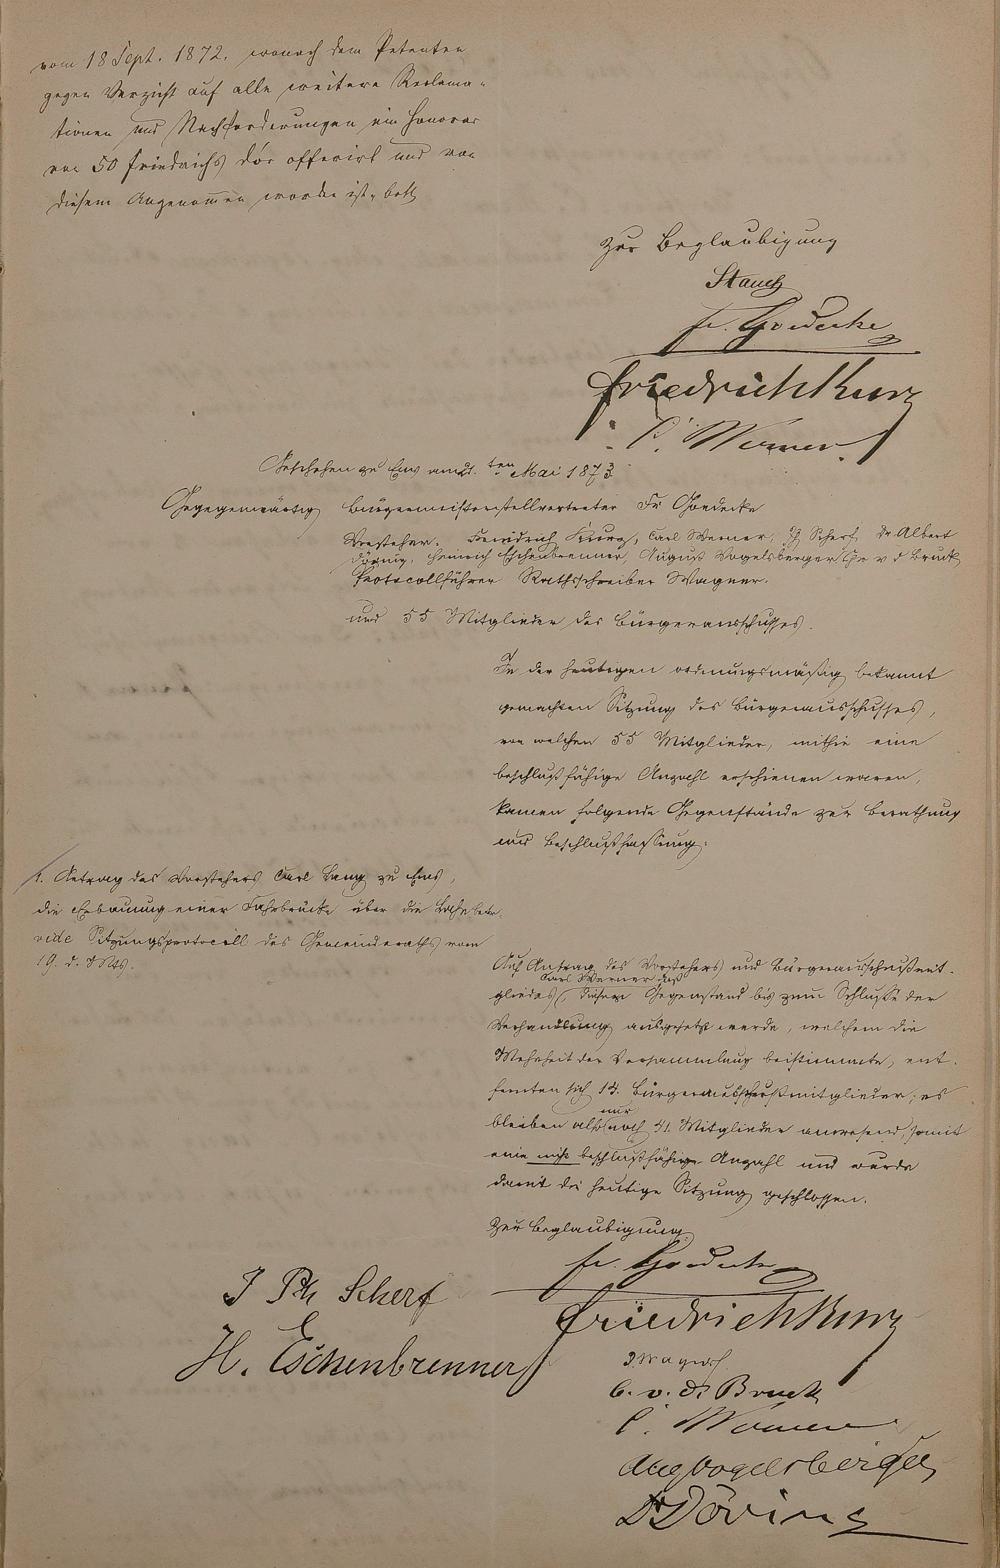 vom 18 Sept. 1872, wonach dem Petenten
gegen Verzicht auf alle weitere Reclama-
tionen und Nachforderungen ein Honorar
von 50 Friedrichs dór offerirt und von
diesem Angenommen worden ist, betr
Zur Beglaubigung
Stauch
Fr. Goedecke
Friedrich Kurz
C. Werner.
Geschehen zu Ems am 21. ten Mai 1873
Gegegenwärtig Bürgermeisterstellvertreter Fr Goedecke
Vorsteher. Friedrich Kurz, Carl Werner, Ph Scherf, Dr Albert
Döring, Heinrich Eschenbrenner, August Vogelsberger, v d Bruck
Protocollführer Rathsschreiber Wagner.
und 55 Mitglieder des Bürgerausschusses.
In der heutigen ordnungsmäßig bekannt
gemachten Sitzung des Bürgerausschusses,
von welchen 55 Mitglieder, mithin eine
beschlußfähige Anzahl erschienen waren,
kamen folgende Gegenstände zur Berathung
und Beschlußfassung:
1. Antrag des Vorstehers Carl Lang zu Ems,
die Erbauung einer Fahrbrücke über die Lahn betr.
vide Sitzungsprotocoll des Gemeinderaths vom
19. d. Mts.
Auf Antrag des Vorstehers und Bürgerausschußmit-
Carl Werner daß
gliedes dieser Gegenstand bis zum Schlusse der
Verhandlung ausgesetzt werde, welchem die
Mehrheit der Versammlung beistimmte, ent-
fernten sich 14. Bürgerausschußmitglieder; es
nur
bleiben also noch 41. Mitglieder anwesend, somit
eine nicht beschlußfähige Anzahl und wurde
damit die heutige Sitzung geschlossen.
Zur Beglaubigung
Fr. Goedecke
J Ph Scherf
Friedrich Kurz
H. Eschenbrenner
Wagner
C. v. d. Bruck
C. Werner
Aug Vogelsberger
Dr Döring